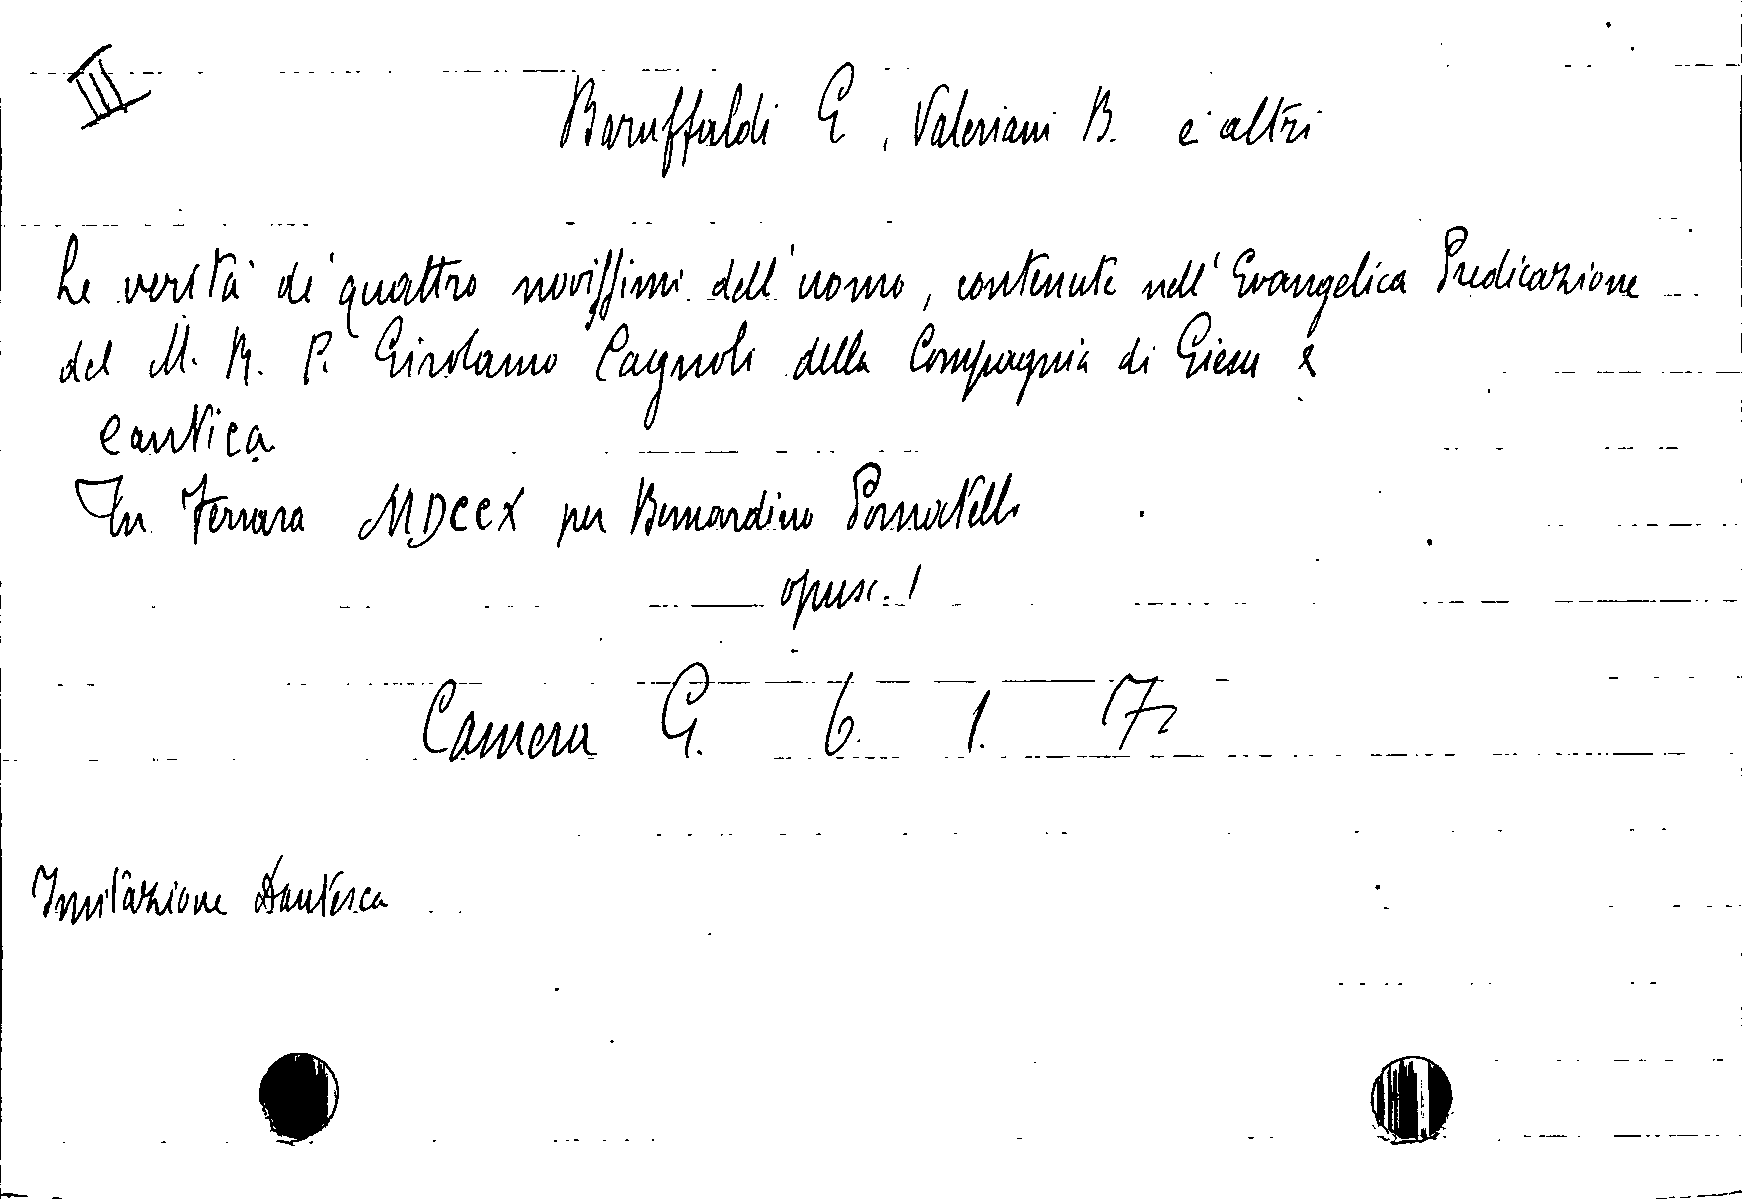 III
Baruffaldi G, Valeriani B. e altri
Le verità de' quattro novissimi dell'uomo, contenute nell'Evangelica Predicazione
del M. R. P. Girolamo Cagnoli della Compagnia di Giesu &
cantica
In Ferrara MDCCX per Bernardino Pomatelli
opusc. 1
Camera G. 6. 1. 7
Imitazione Dantesca